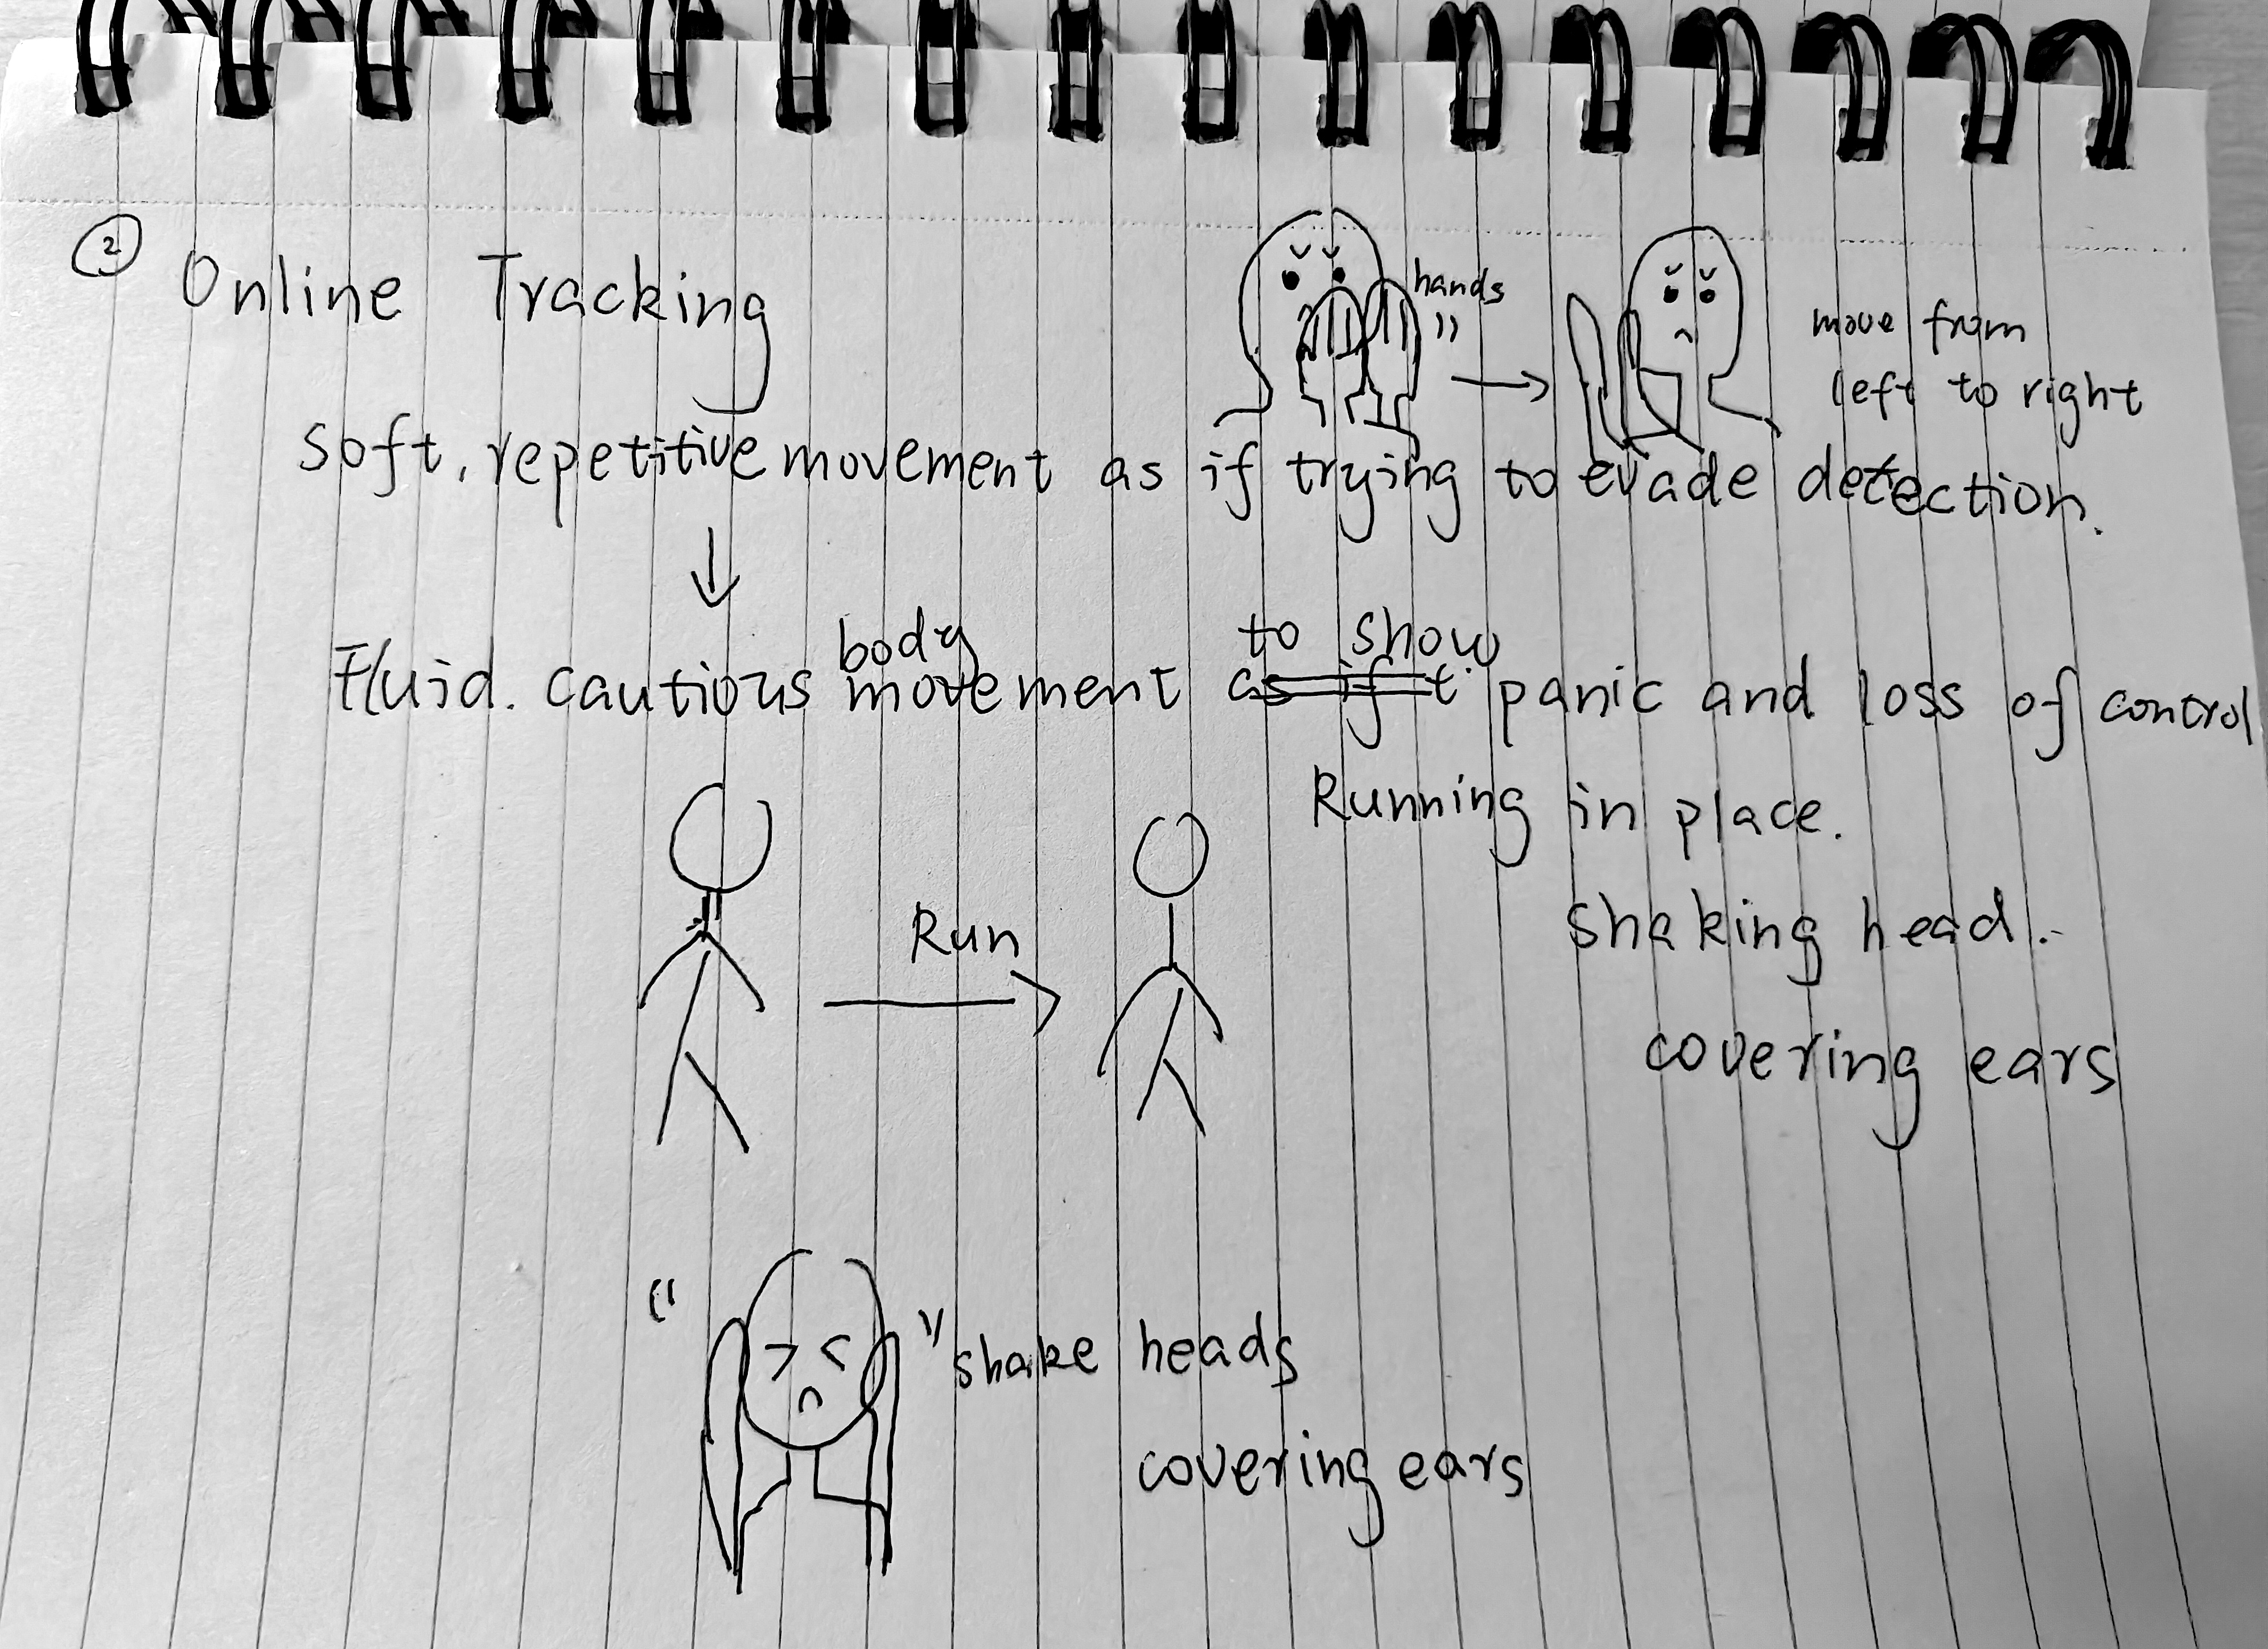 ② Online Tracking
hands
move from
left to right
soft, repetitive movement as if trying to evade detection.
↓
body to show
Fluid. cautious movement as if t panic and loss of control
Running in place.
Run
shaking head.
covering ears
shake heads
covering ears